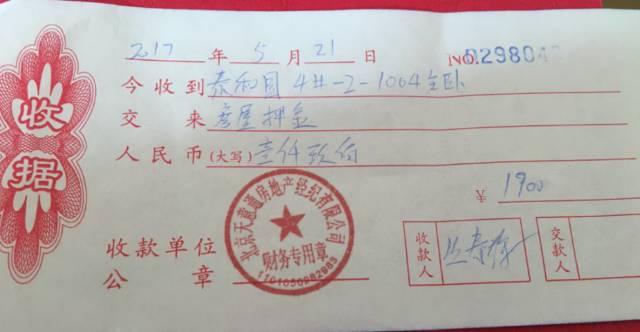 收据
2017年5月21日 NO.
今收到泰和园4#-2-1004主卧
交来房屋押金
人民币(大写)壹仟玖佰
¥1900
北京天意通房地产经纪有限公司
财务专用章
收款单位
公章
收款人
交款人